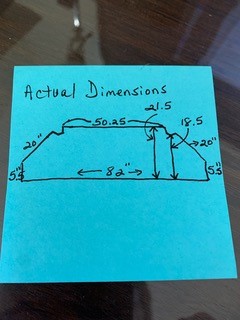 Actual Dimensions
21.5
50.25
18.5
20"
20"
5.5"
82"
5.5"